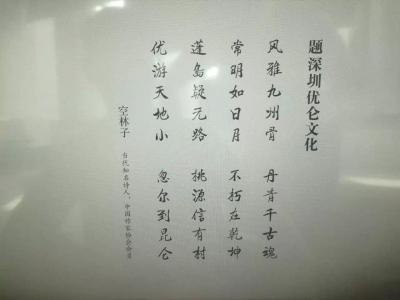 题深圳优仑文化
风雅九州骨 丹青千古魂
常明如日月 不朽在乾坤
莲岛疑无路 桃源信有村
优游天地小 忽尔到昆仑
空林子 当代知名诗人,中国作家协会会员